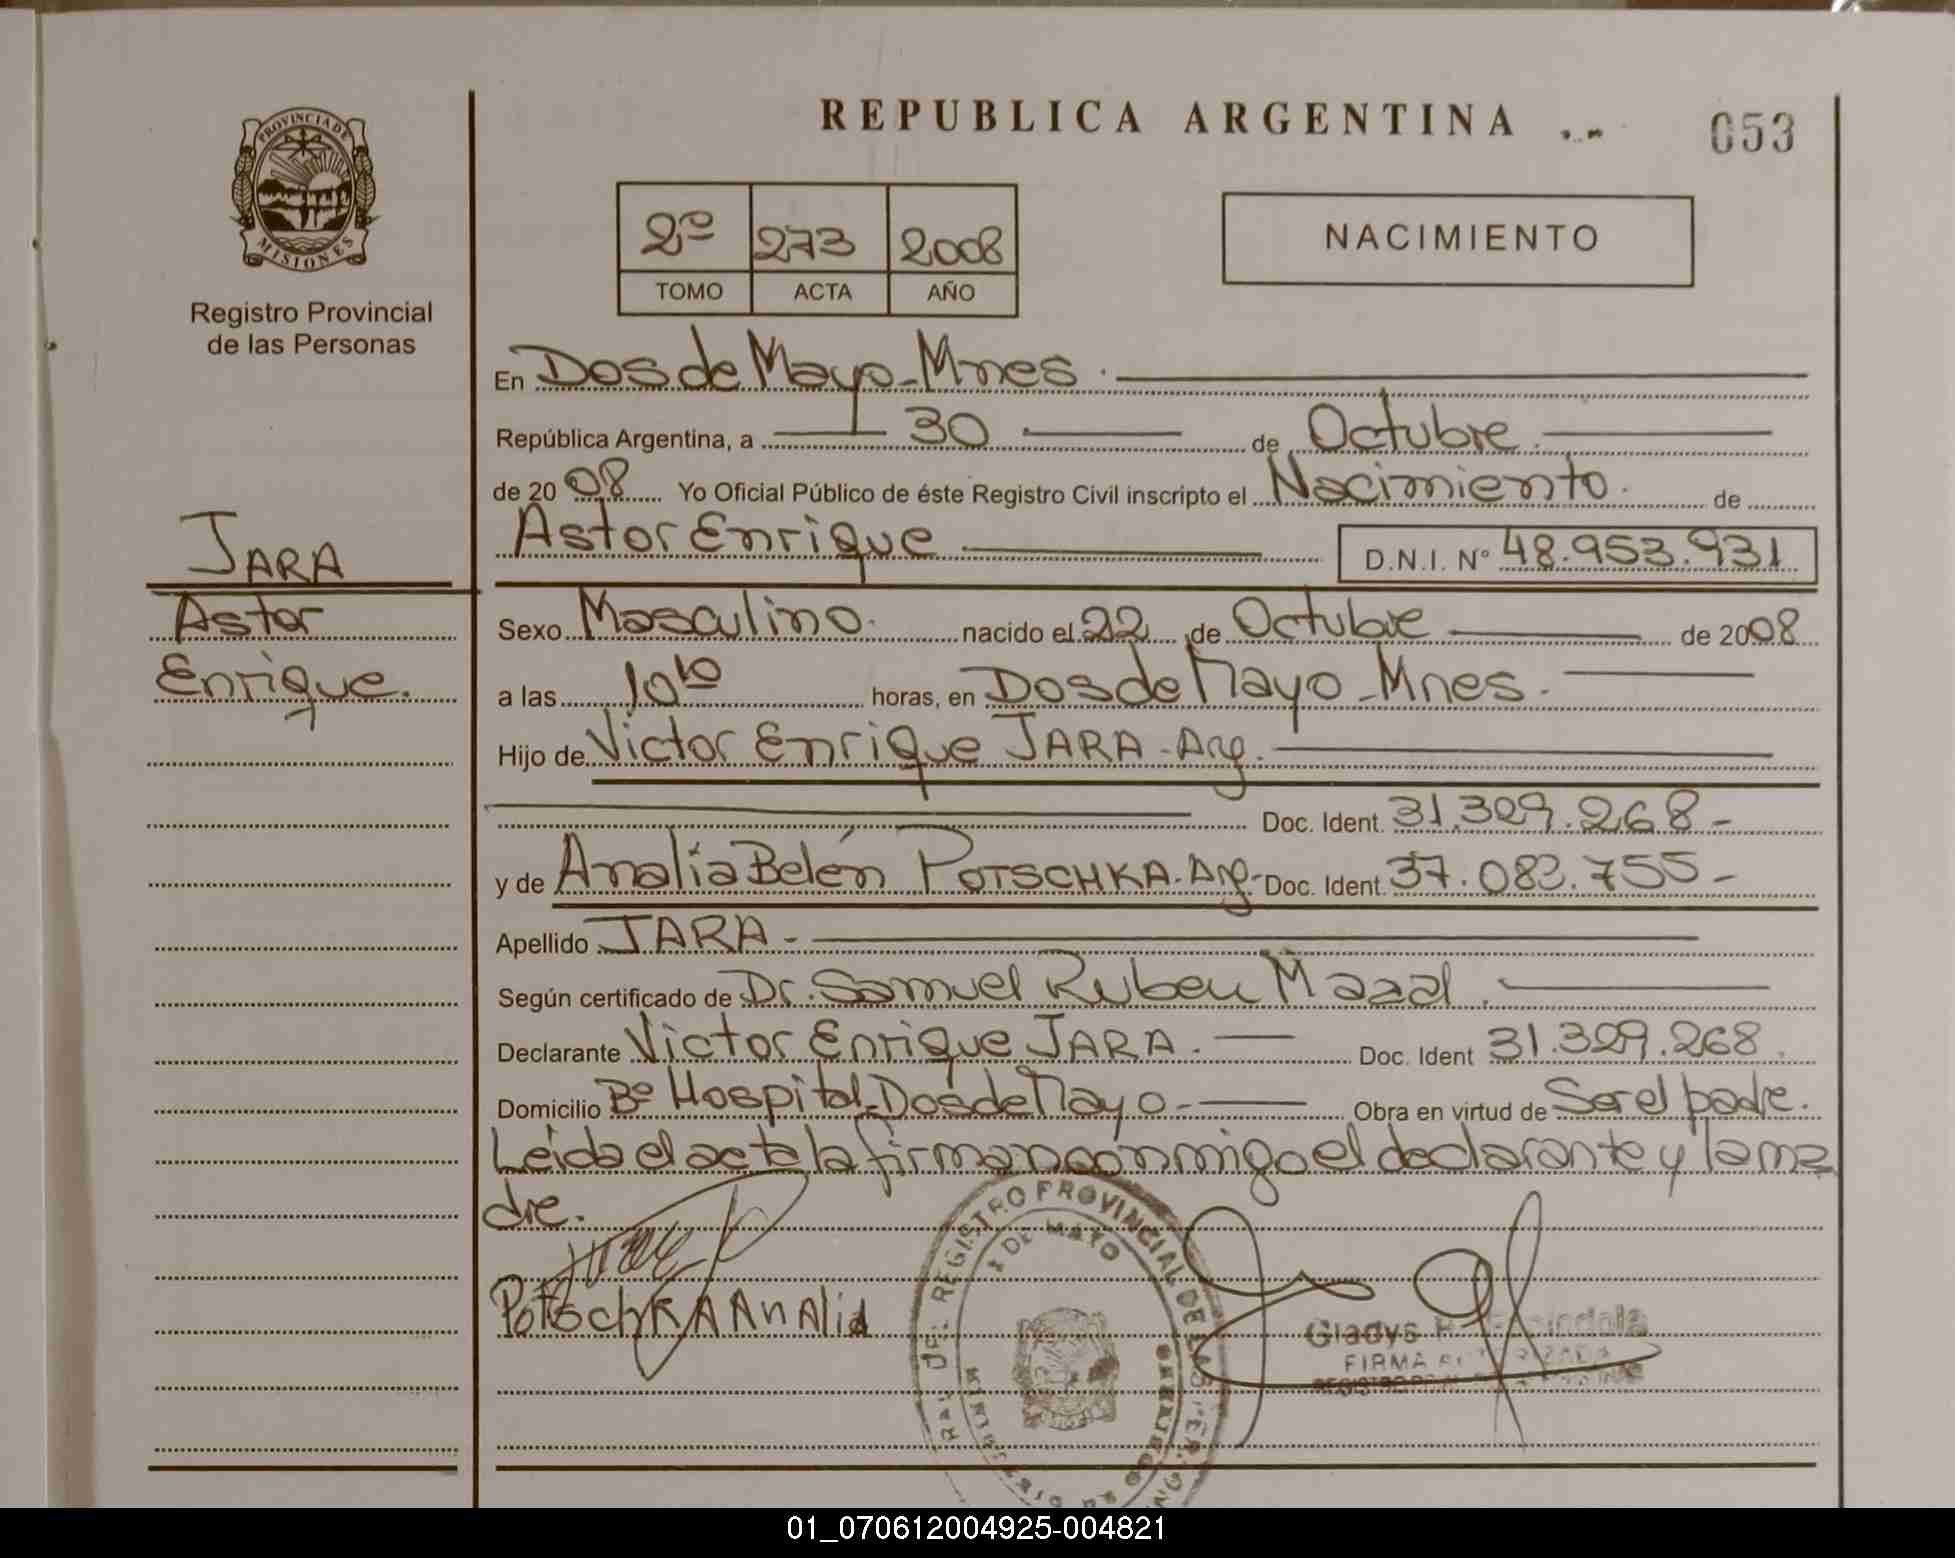 REPUBLICA ARGENTINA
053
PROVINCIA DE
MISIONES
Registro Provincial
de las Personas
2º 273 2008
TOMO ACTA AÑO
NACIMIENTO
En Dos de Mayo - Mnes.
República Argentina, a 30 de Octubre.
de 2008 Yo Oficial Público de éste Registro Civil inscripto el Nacimiento. de
Astor Enrique D.N.I. Nº 48.953.931
JARA
Astor
Enrique.
Sexo Masculino. nacido el 22 de Octubre de 2008
a las 10 10 horas, en Dos de Mayo - Mnes.
Hijo de Victor Enrique JARA - Arg.
Doc. Ident. 31.329.268 -
y de Analía Belén POTSCHKA - Arg - Doc. Ident. 37.083.755 -
Apellido JARA -
Según certificado de Dr. Samuel Ruben Mazal.
Declarante Victor Enrique JARA. Doc. Ident 31.329.268.
Domicilio Bº Hospital - Dos de Mayo - Obra en virtud de Ser el padre.
Leida el acta la firman conmigo el declarante y la ma
dre.
PotschKA AnAlia
REGISTRO PROVINCIAL DE LAS
2 DE MAYO
Gladys
FIRMA
01_070612004925-004821